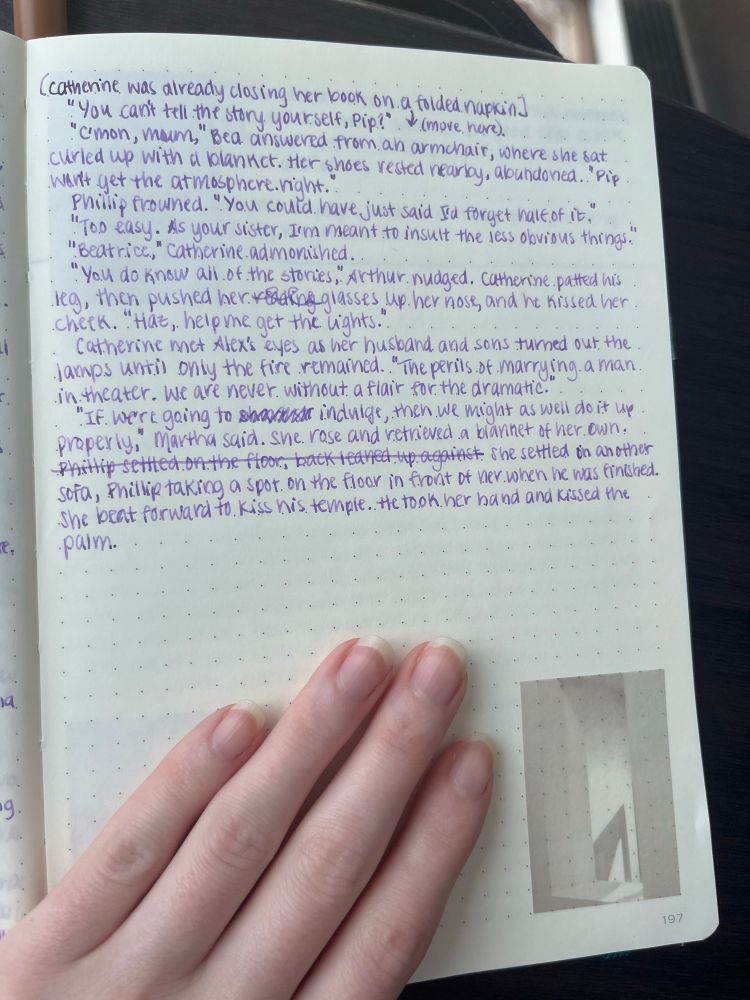 (Catherine was already closing her book on a folded napkin]
"You can't tell the story yourself, Pip?" ↓ (move here)
"C'mon, mum," Bea answered from an armchair, where she sat
curled up with a blanket. Her shoes rested nearby, abandoned. "Pip
won't get the atmosphere right."
Phillip frowned. "You could have just said I'd forget half of it."
"Too easy. As your sister, I'm meant to insult the less obvious things."
"Beatrice," Catherine admonished.
"You do know all of the stories," Arthur nudged. Catherine patted his
leg, then pushed her reading glasses up her nose, and he kissed her
cheek. "Haz, help me get the lights."
Catherine met Alex's eyes as her husband and sons turned out the
lamps until only the fire remained. "The perils of marrying a man
in theater. We are never without a flair for the dramatic."
"If we're going to indulge, then we might as well do it up
properly," Martha said. She rose and retrieved a blanket of her own.
Phillip settled on the floor, back leaned up against she settled on another
sofa, Phillip taking a spot on the floor in front of her when he was finished.
She beat forward to kiss his temple. He took her hand and kissed the
palm.
197